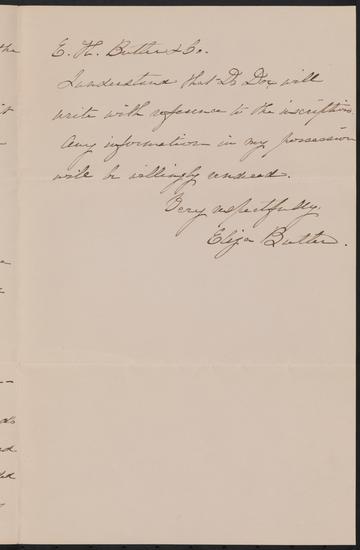 E. H. Butler & Co.
I understand that Dr Dox will
write with reference to the inscription.
Any information in my possession
will be willingly rendered.
Very respectfully.
Eliza Butler.